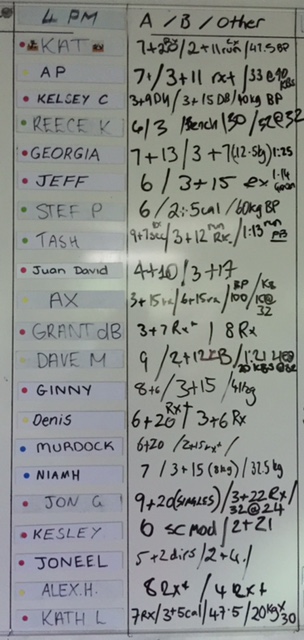 4 PM A / B / Other
KAT 7+20 / 2+11 / 47.5 BP
AP 7+ / 3+11 rx+ / 33@40 KBs
KELSEY C 3+9DU / 3+15 DB / 40kg BP
REECE K 6/3 / Bench / 30 / 52@32
GEORGIA 7+13 / 3+7(12.5kg) 1:25
JEFF 6 / 3+15 1:14
STEF P 6 / 2+5cal / 60kg BP
TASH / 3+12 RX / 1:13 run PB
Juan David 4+10 / 3+17
AX 3+15rx / 6+15rx / BP 100 / KB 32
GRANT dB 3+7 Rx+ / 8 Rx
DAVE M 9 / 2+12 / 1:21
GINNY 8+6 / 3+15 / 41kg
Denis 6+20 Rx+ / 3+6 Rx
MURDOCK 6+20 / 2+15rx+ /
NIAMH 7 / 3+15 (8kg) / 32.5kg
JON G 9+20(SINGLES) / 3+22 Rx / 32@24
KESLEY 6 SC mod / 2+21
JONEEL 5+2 dirs / 2+4 /
ALEX.H. 8 Rx+ / 4 Rx+
KATH L 7RX / 3+5cal / 47.5 / 20kg x 30